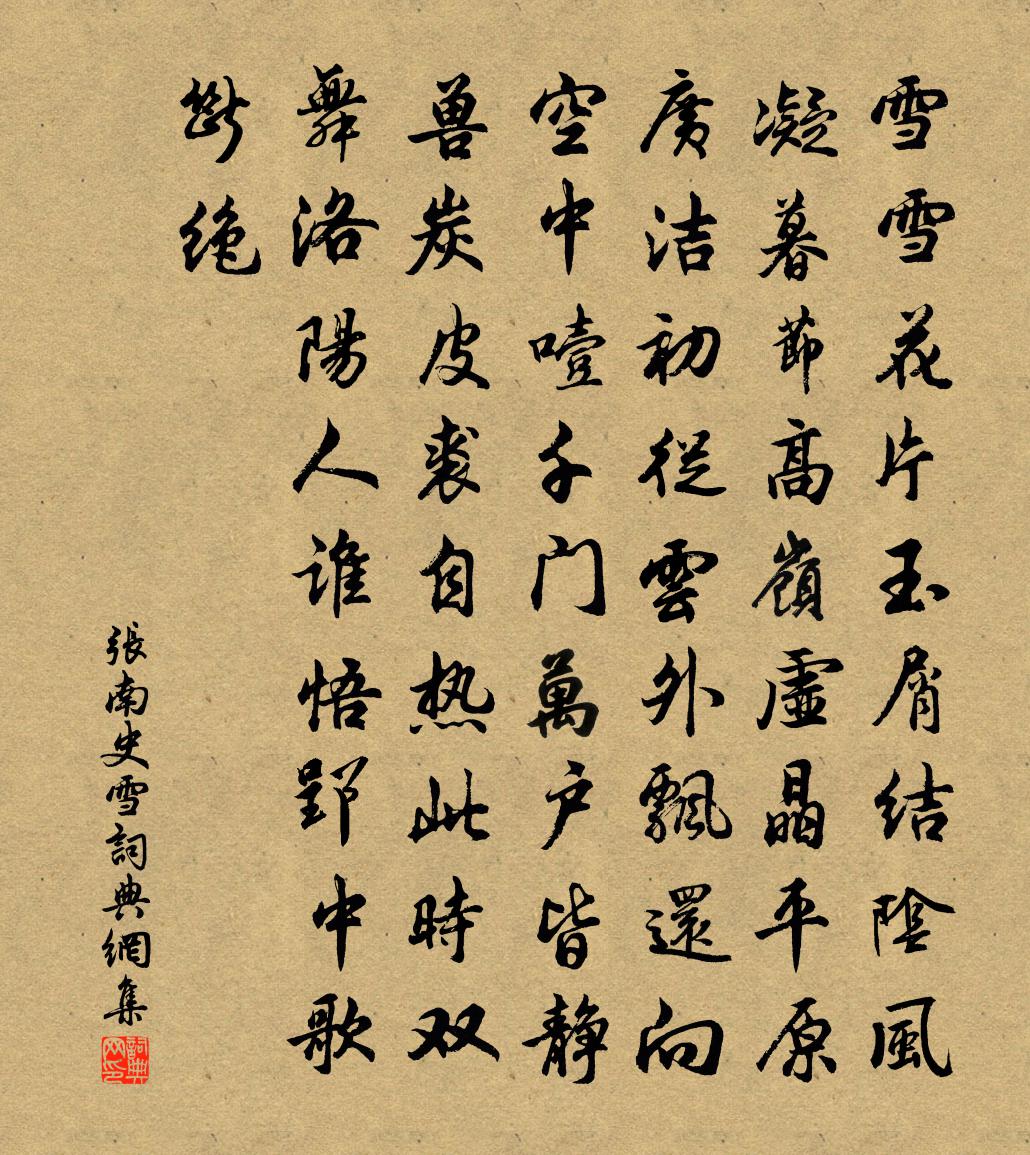 雪雪花片玉屑結陰風
凝暮節高嶺虛晶平原
廣洁初從雲外飄還向
空中噎千门萬户皆静
兽炭皮裘自热此時双
舞洛陽人谁悟郢中歌
斷绝
張南史雪詞典網集
詞典网印